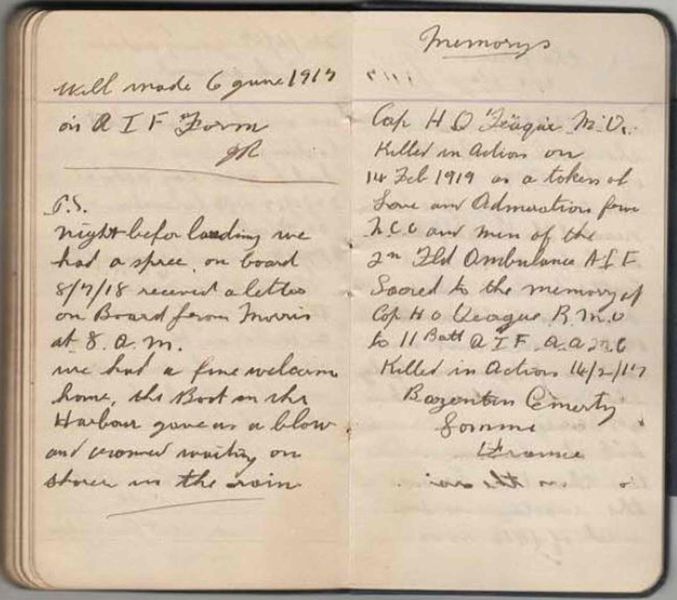 Will made 6 June 1917
on A I F Form
JR
P.S.
night befor landing we
had a spree on board
8/7/18 received a letter
on Board from Morris
at 8. A.M.
we had a fine welcom
home, the Boat in the
Harbour gave us a blow
and crowed waiting on
shore in the rain
Memorys
Cap H O Teague M.O.
Killed in Action on
14 Feb 1919 as a token of
Love and Admiration from
N.C.O and men of the
2n Fld Ambulance A I F
Sacred to the memory of
Cap H O Teague R.M.O
to 11 Batt A I F. A.A.M.C
Killed in Action 14/2/17
Bazentin Cemerty
Somme
France